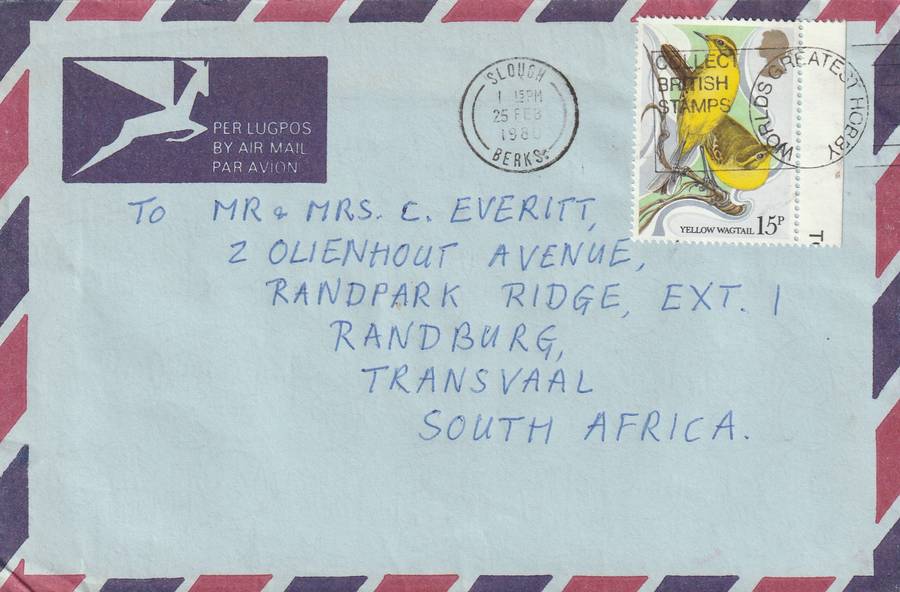 PER LUGPOS
BY AIR MAIL
PAR AVION
SLOUGH
1 15PM
25 FEB
1980
BERKS.
COLLECT
BRITISH
STAMPS
WORLDS GREATEST HOBBY
YELLOW WAGTAIL 15P
TO MR & MRS. C. EVERITT,
2 OLIENHOUT AVENUE,
RANDPARK RIDGE, EXT. 1
RANDBURG,
TRANSVAAL
SOUTH AFRICA.